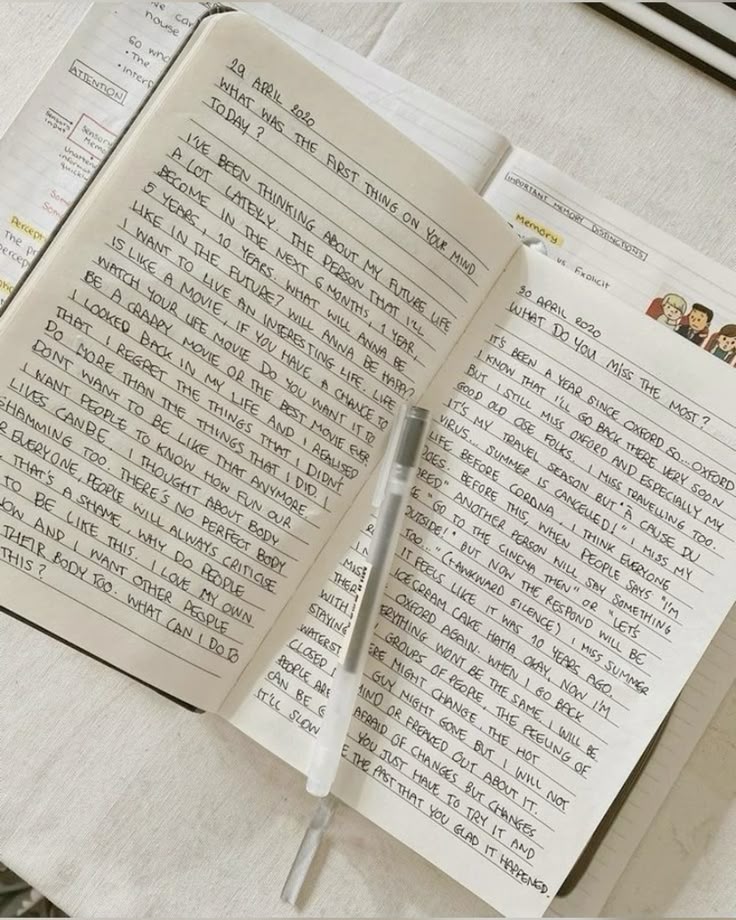 29 APRIL 2020
WHAT WAS THE FIRST THING ON YOUR MIND
TODAY?
I'VE BEEN THINKING ABOUT MY FUTURE LIFE
A LOT LATELY. THE PERSON THAT I'LL
BECOME IN THE NEXT 6 MONTHS, 1 YEAR,
5 YEARS, 10 YEARS. WHAT WILL ANNA BE
LIKE IN THE FUTURE? WILL ANNA BE HAPPY?
I WANT TO LIVE AN INTERESTING LIFE. LIFE
IS LIKE A MOVIE, IF YOU HAVE A CHANCE TO
WATCH YOUR LIFE MOVIE DO YOU WANT IT TO
BE A CRAPPY MOVIE OR THE BEST MOVIE EVER
I LOOKED BACK IN MY LIFE AND I REALISED
THAT I REGRET THE THINGS THAT I DIDN'T
DO MORE THAN THE THINGS THAT I DID. I
DONT WANT TO BE LIKE THAT ANYMORE.
I WANT PEOPLE TO KNOW HOW FUN OUR
LIVES CAN BE. I THOUGHT ABOUT BODY
SHAMMING TOO. THERE'S NO PERFECT BODY
EVERYONE, PEOPLE WILL ALWAYS CRITICISE
THAT'S A SHAME. WHY DO PEOPLE
TO BE LIKE THIS. I LOVE MY OWN
NOW AND I WANT OTHER PEOPLE
THEIR BODY TOO. WHAT CAN I DO TO
THIS?
30 APRIL 2020
WHAT DO YOU MISS THE MOST?
IT'S BEEN A YEAR SINCE OXFORD SO... OXFORD
I KNOW THAT I'LL GO BACK THERE VERY SOON
BUT I STILL MISS OXFORD AND ESPECIALLY MY
GOOD OLD FOLKS. I MISS TRAVELLING TOO.
IT'S MY TRAVEL SEASON BUT "À CAUSE DU
VIRUS... SUMMER IS CANCELLED!" I MISS MY
LIFE BEFORE CORONA, I THINK EVERYONE
DOES. BEFORE THIS, WHEN PEOPLE SAYS "I'M
ANOTHER PERSON WILL SAY SOMETHING
"GO TO THE CINEMA THEN" OR "LET'S
OUTSIDE!" BUT NOW THE RESPOND WILL BE
TOO..." (AWKWARD SILENCE) I MISS SUMMER
IT FEELS LIKE IT WAS 10 YEARS AGO.
MISS ICECREAM CAKE HAHA OKAY, NOW I'M
OXFORD AGAIN. WHEN I GO BACK
WITH EVERYTHING WONT BE THE SAME. I WILL BE
STAYING GROUPS OF PEOPLE, THE FEELING OF
MIGHT CHANGE, THE HOT
CLOSED GUY MIGHT GONE BUT I WILL NOT
PEOPLE ARE MIND OR FREAKED OUT ABOUT IT.
CAN BE AFRAID OF CHANGES BUT CHANGES
IT'LL SLOW YOU JUST HAVE TO TRY IT AND
THE PAST THAT YOU GLAD IT HAPPENED.
ATTENTION
IMPORTANT MEMORY DISTINCTIONS
Memory
vs. Explicit